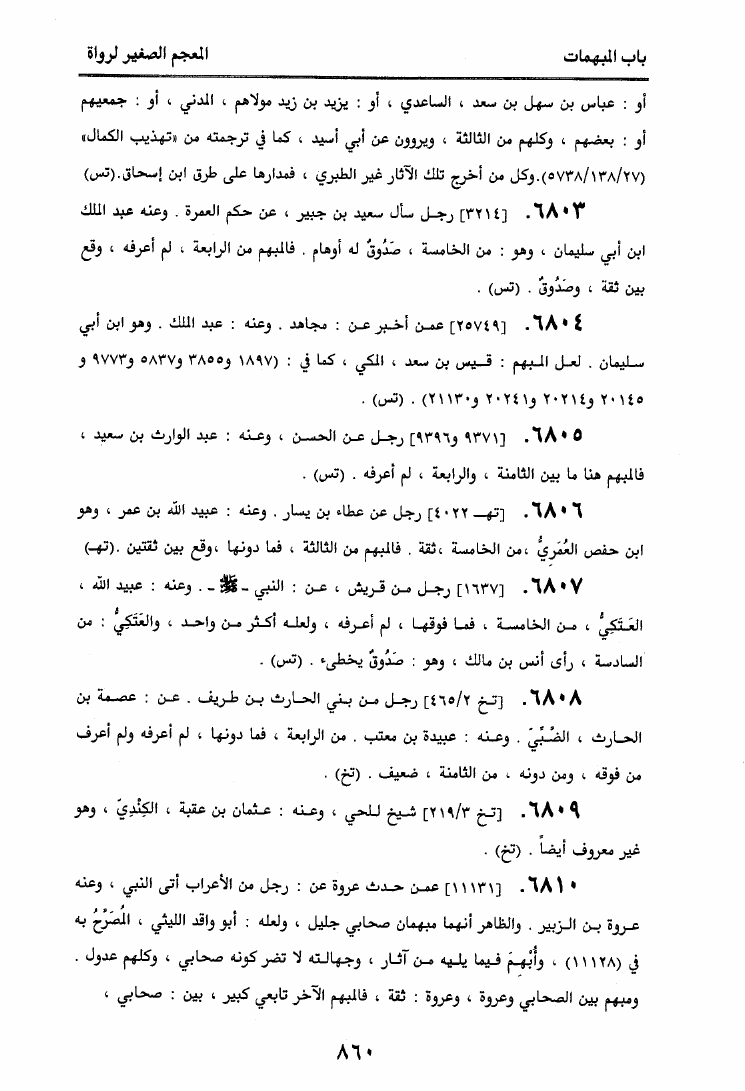 باب المبهمات
المعجم الصغير لرواة
أو : عباس بن سهل بن سعد ، الساعدي ، أو : يزيد بن زيد مولاهم ، المدني ، أو : جمعيهم
أو : بعضهم ، وكلهم من الثالثة ، ويروون عن أبي أسيد ، كما في ترجمته من «تهذيب الكمال»
(٥٧٣٨/١٣٨/٢٧).وكل من أخرج تلك الآثار غير الطبري ، فمدارها على طرق ابن إسحاق.(تس)
٦٨٠٣. [٣٢١٤] رجل سأل سعيد بن جبير ، عن حكم العمرة . وعنه عبد الملك
ابن أبي سليمان ، وهو : من الخامسة ، صَدُوقٌ له أوهام . فالمبهم من الرابعة ، لم أعرفه ، وقع
بين ثقة ، وصَدُوقٌ . (تس) .
٦٨٠٤. [٢٥٧٤٩] عمن أخبر عن : مجاهد . وعنه : عبد الملك . وهو ابن أبي
سليمان . لعل المبهم : قيس بن سعد ، المكي ، كما في : (١٨٩٧ و٣٨٥٥ و٥٨٣٧ و٩٧٧٣ و
٢٠١٤٥ و٢٠٢١٤ و٢٠٢٤١ و٢١١٣٠) . (تس) .
٦٨٠٥. [٩٣٧١ و٩٣٩٦] رجل عن الحسن ، وعنه : عبد الوارث بن سعيد ،
فالمبهم هنا ما بين الثامنة ، والرابعة ، لم أعرفه . (تس) .
٦٨٠٦. [تهـ ٤٠٢٢] رجل عن عطاء بن يسار . وعنه : عبيد الله بن عمر ، وهو
ابن حفص العُمَرِيُّ ،من الخامسة ،ثقة . فالمبهم من الثالثة ، فما دونها ،وقع بين ثقتين .(تهـ)
٦٨٠٧. [١٦٣٧] رجل من قريش ، عن : النبي - ﷺ -. وعنه : عبيد الله ،
العَتَكِيُّ ، من الخامسة ، فما فوقها ، لم أعرفه ، ولعله أكثر من واحد ، والعَتَكِيُّ : من
السادسة ، رأى أنس بن مالك ، وهو : صَدُوقٌ يخطىء . (تس) .
٦٨٠٨. [تخ ٤٦٥/٢] رجل من بني الحارث بن طريف . عن : عصمة بن
الحارث ، الضَّبِّيّ . وعنه : عبيدة بن معتب . من الرابعة ، فما دونها ، لم أعرفه ولم أعرف
من فوقه ، ومن دونه ، من الثامنة ، ضعيف . (تخ) .
٦٨٠٩. [تخ ٢١٩/٣] شيخ للحي ، وعنه : عثمان بن عقبة ، الكِنْدِيّ ، وهو
غير معروف أيضاً . (تخ) .
٦٨١٠. [١١١٣١] عمن حدث عروة عن : رجل من الأعراب أتى النبي ، وعنه
عروة بن الزبير . والظاهر أنهما مبهمان صحابي جليل ، ولعله : أبو واقد الليثي ، المُصَرَّحُ به
في (١١١٢٨) ، وأُبْهِمَ فيما يليه من آثار ، وجهالته لا تضر كونه صحابي ، وكلهم عدول .
ومبهم بين الصحابي وعروة ، وعروة : ثقة ، فالمبهم الآخر تابعي كبير ، بين : صحابي ،
٨٦٠